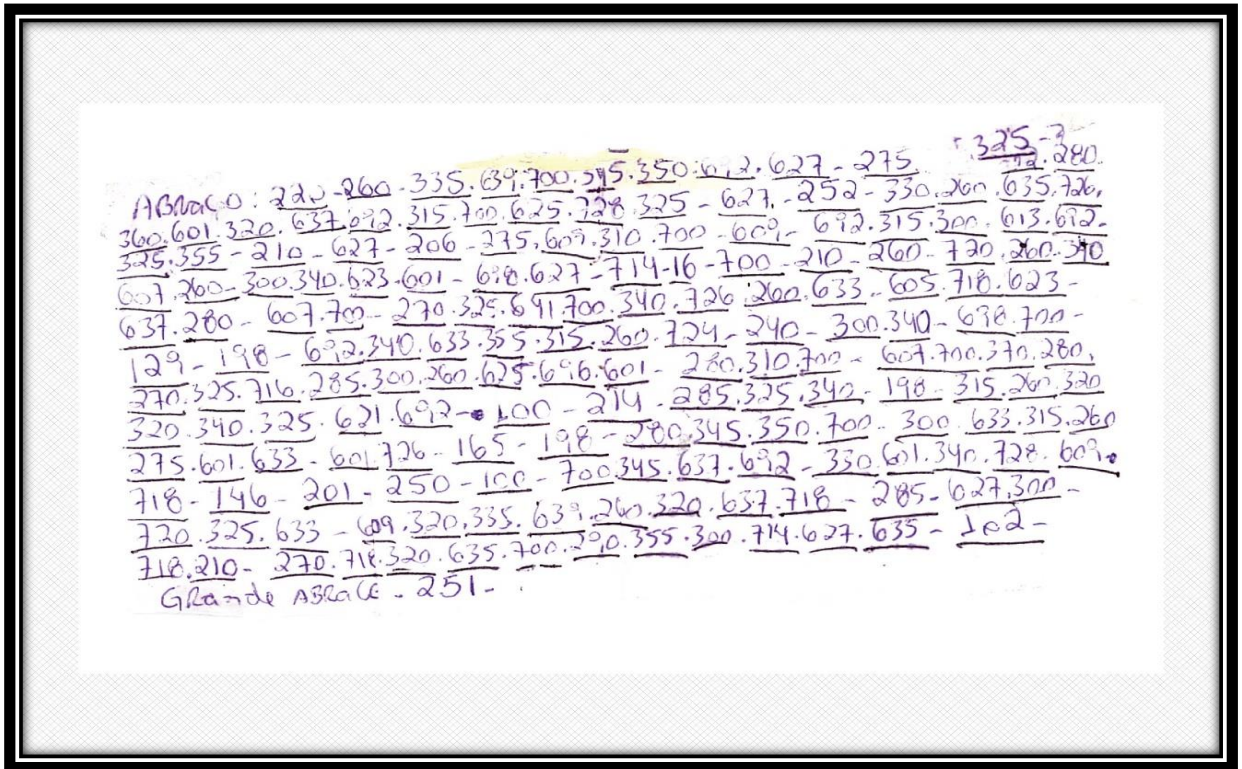 ABRAÇO: 220-260-335.639.700.345.350.692.627-275 325-
360.601.320.637.692.315.700.625.728.325-627.-252-330.260.635.726. 280.
325.355-210-627-206-275.609.310.700-609-692.315.300.613.692-
607.260-300.340.623.601-698.627-714-16-700-210-260-720.260.340
637.280-607.700-270.325.691.700.340.726.260.633-605.718.623-
129-198-692.340.633.355.315.260.724-240-300.340-698.700-
270.325.716.285.300.260.625.696.601-280.310.700-607.700.370.280.
320.340.325.621.692-100-214-285.325.340-198-315.260.320
275.601.633-601.726-165-198-280.345.350.700-300.633.315.260
718-146-201-250-100-700.345.637.692-330.601.340.728.609.
720.325.633-609.320.335.639.260.320.637.718-285-627.300-
718.210-270.718.320.635.700.290.355.300.714.627.635-102-
GRande ABRACE-251-